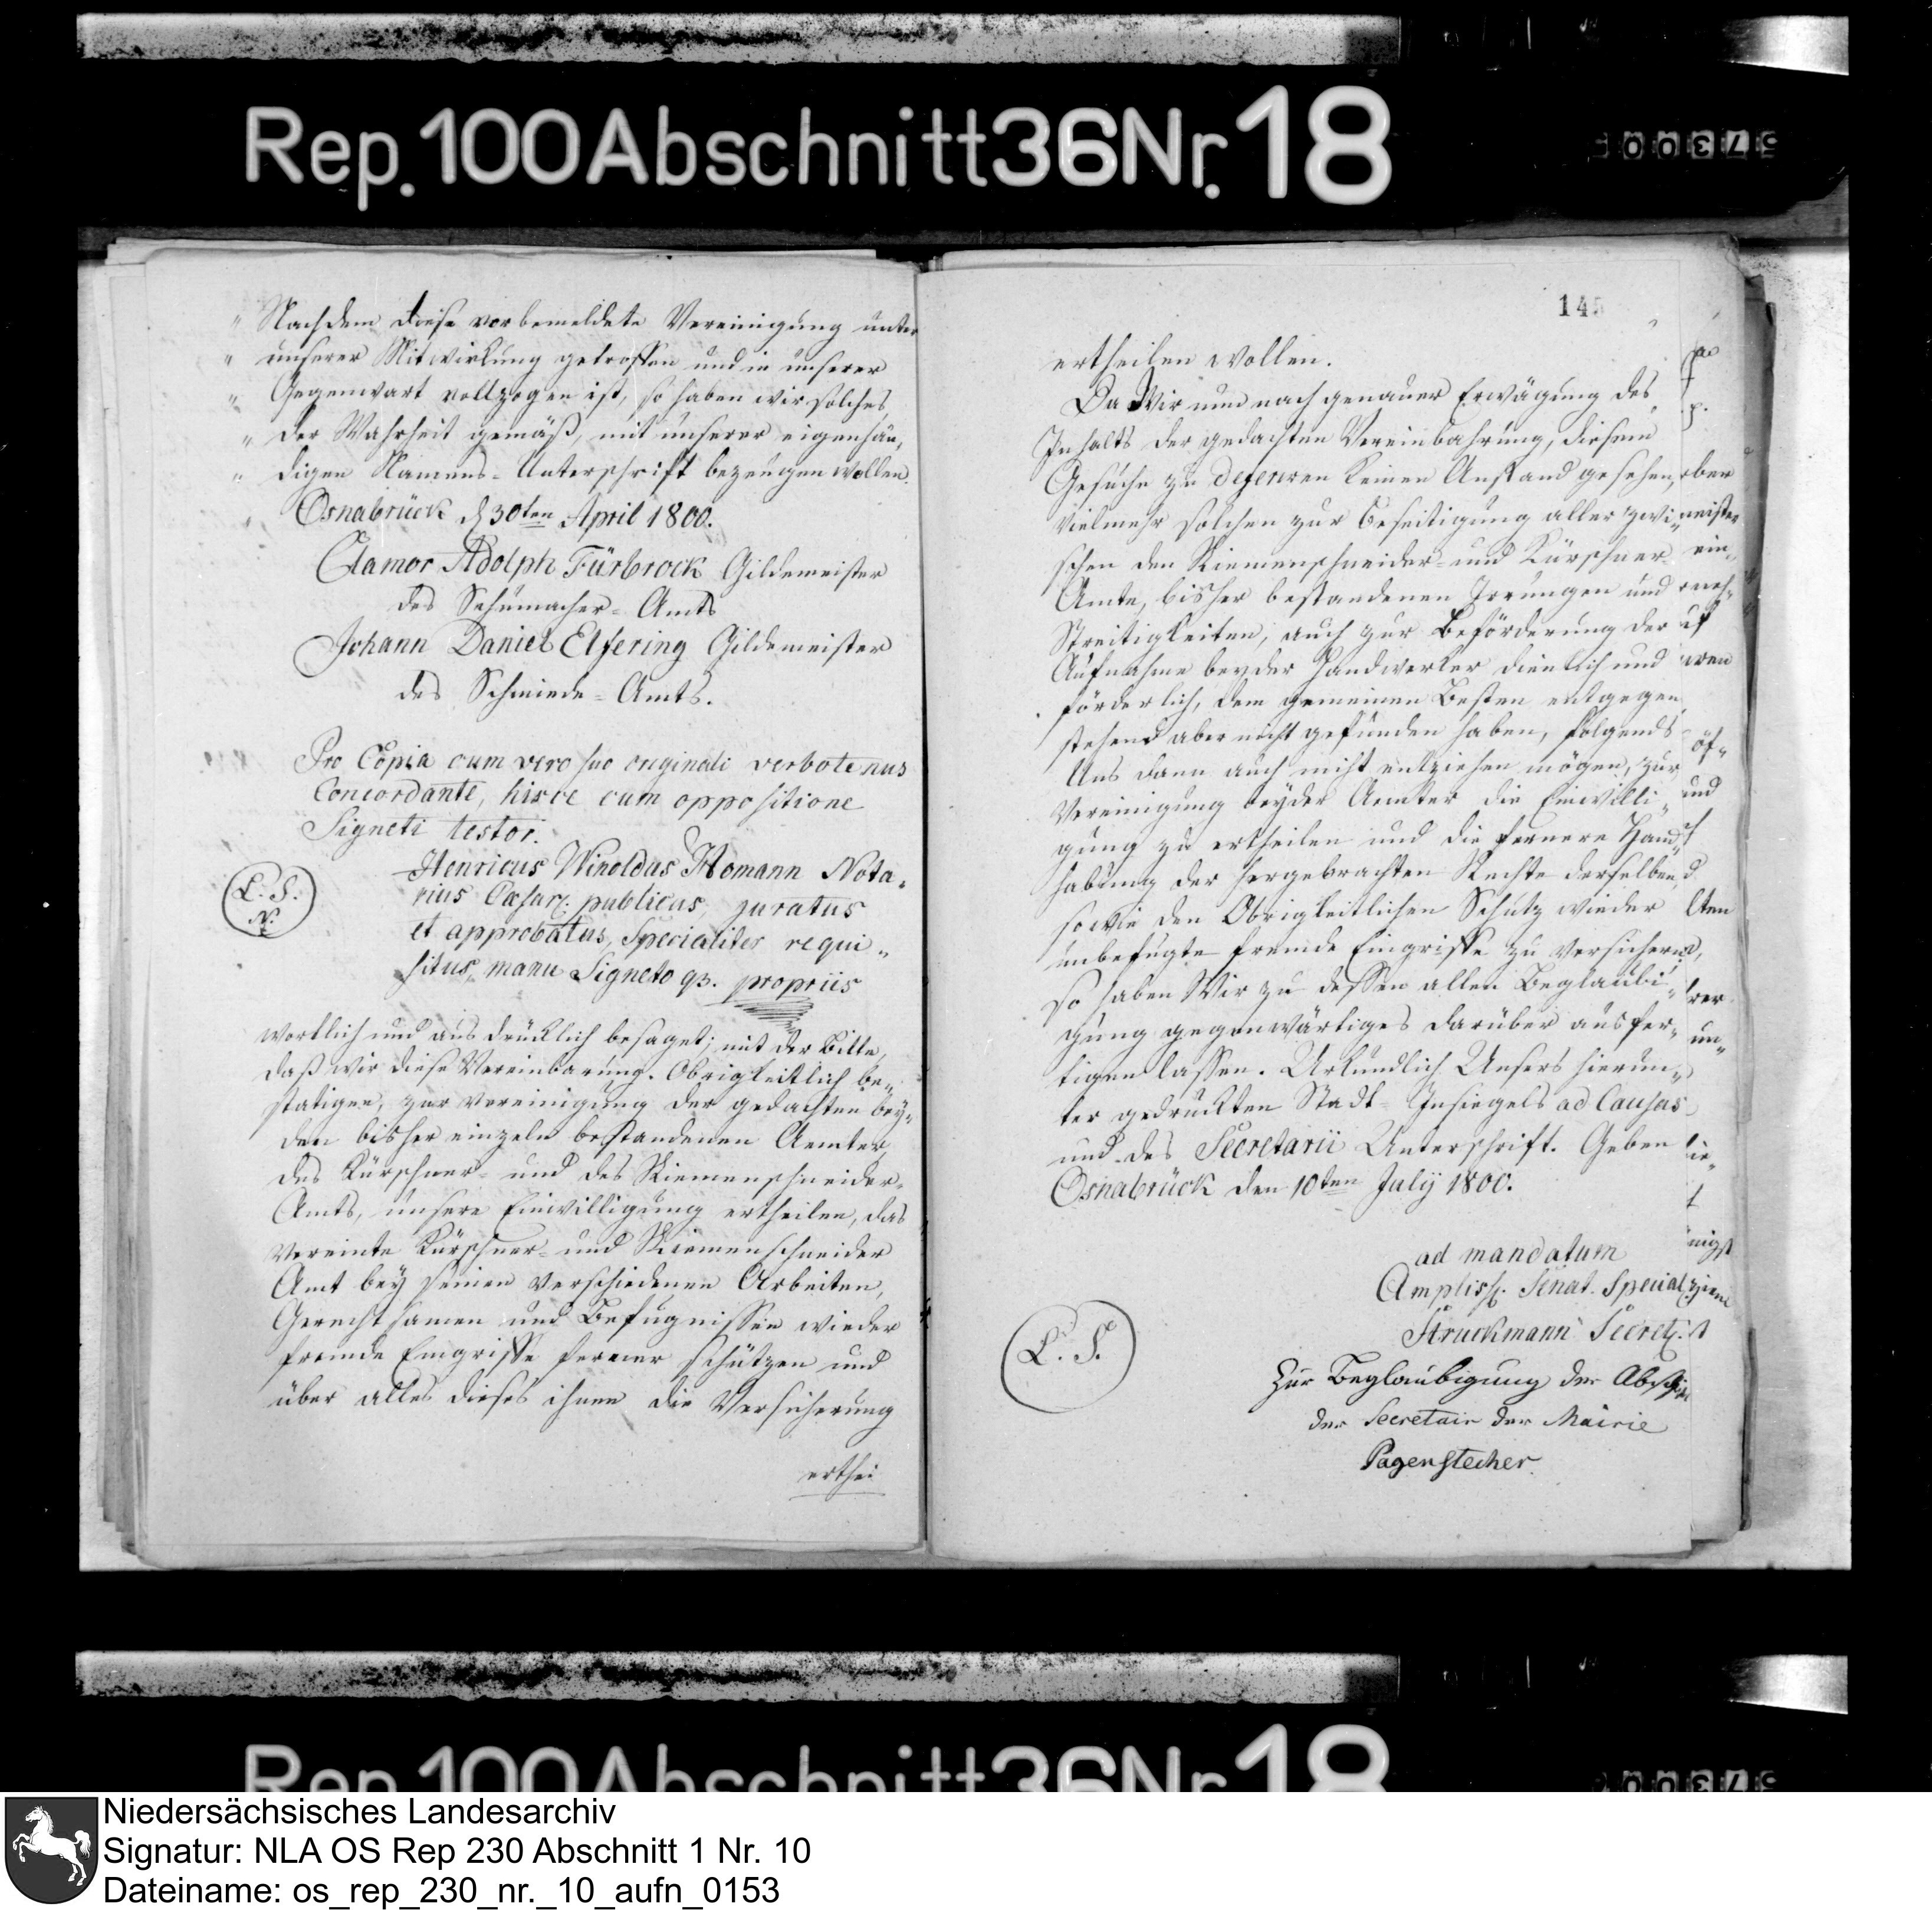 Rep. 100 Abschnitt 36 Nr. 18
" Nachdem diese vorbemeldete Vereinigung unter
" unserer Mitwirkung getroffen und in unserer
" Gegenwart vollzogen ist, so haben wir solches
" der Wahrheit gemäß, mit unserer eigenhän„
" digen Namens-Unterschrift bezeugen wollen.
Osnabrück d 30ten April 1800.
Clamor Adolph Fürbrock Gildemeister
des Schumacher-Amts
Johann Daniel Elfering Gildemeister
des Schmiede-Amts.
Pro Copia cum vero suo originali verbotenus
Concordante, hisce cum oppositione
Signeti testor.
L. S.
N.
Henricus Winoldus Homann Nota„
rius Cæsar. publicus, juratus
et approbatus, Specialiter requi„
situs, manu Signeto q3. propriis
wortlich und ausdrücklich besaget; mit der Bitte,
daß wir diese Vereinbarung. Obrigkeitlich be„
statigen, zur Vereinigung der gedachten bey„
den bisher einzeln bestandenen Aemter,
des Kürschner- und des Riemenschneider-
Amts, unsere Einwilligung ertheilen, das
vereinte Kürschner- und Riemenschneider
Amt bey seinen verschiedenen Arbeiten,
Gerechtsamen und Befugnissen wieder
fremde Eingriffe ferner schützen und
über alles dieses ihnen die Versicherung
erthei
145
ertheilen wollen.
Da Wir nun nach genauer Erwägung des
Inhalts der gedachten Vereinbahrung, diesem
Gesuche zu deferiren keinen Anstand gesehen,
vielmehr solchen zur Beseitigung aller zwi„
schen den Riemenschneider- und Kürschner-
Amte, bisher bestandenen Irrungen und
Streitigkeiten, auch zur Beförderung der
Aufnahme beyder Handwerker dienlich und
förderlich, dem gemeinen Besten entgegen
stehend aber nicht gefunden haben, folgends
Uns dann auch nicht entziehen mögen, zur
Vereinigung beyder Aemter die Einwilli„
gung zu ertheilen und die fernere Hand„
habung der hergebrachten Rechte derselben,
sowie den Obrigkeitlichen Schutz wieder
unbefugte fremde Eingriffe zu versichern,
so haben Wir zu dessen allen Beglaubi„
gung gegenwärtiges darüber ausfer„
tigen lassen. Urkundlich Unsers hierun„
ter gedruckten Stadt-Insiegels ad Causas
und des Secretarii Unterschrift. Geben
Osnabrück den 10ten July 1800.
ad mandatum
Ampliss. Senat. Special
Struckmann Secret.
L. S.
Zur Beglaubigung der Abschrift
der Secretair der Mairie
Pagenstecher.
Rep. 100 Abschnitt 36 Nr. 18
Niedersächsisches Landesarchiv
Signatur: NLA OS Rep 230 Abschnitt 1 Nr. 10
Dateiname: os_rep_230_nr._10_aufn_0153